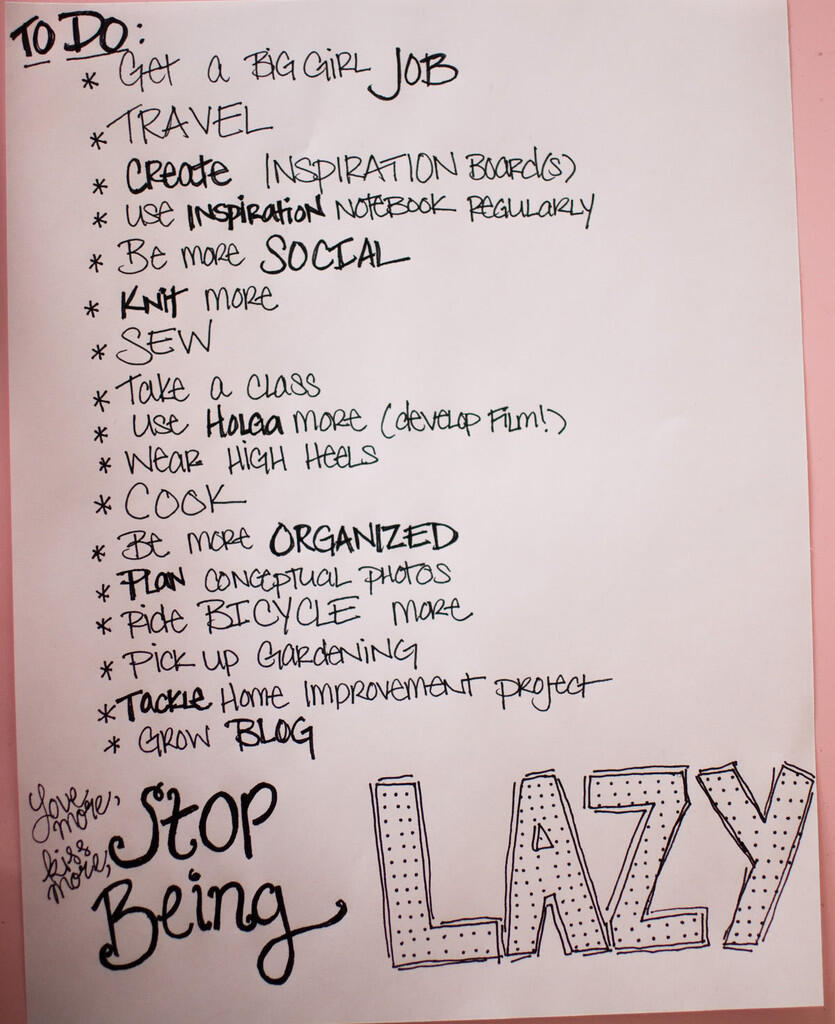 TO DO:
* GET a BIG GIRL JOB
* TRAVEL
* CREATE INSPIRATION BOARD(S)
* USE INSPIRATION NOTEBOOK REGULARLY
* BE MORE SOCIAL
* KNIT MORE
* SEW
* TAKE a CLASS
* USE HOLGA MORE (DEVELOP FILM!)
* WEAR HIGH HEELS
* COOK
* BE MORE ORGANIZED
* PLAN CONCEPTUAL PHOTOS
* RIDE BICYCLE MORE
* PICK UP GARDENING
* TACKLE HOME IMPROVEMENT PROJECT
* GROW BLOG
Love
more,
kiss
more,
Stop
Being
LAZY